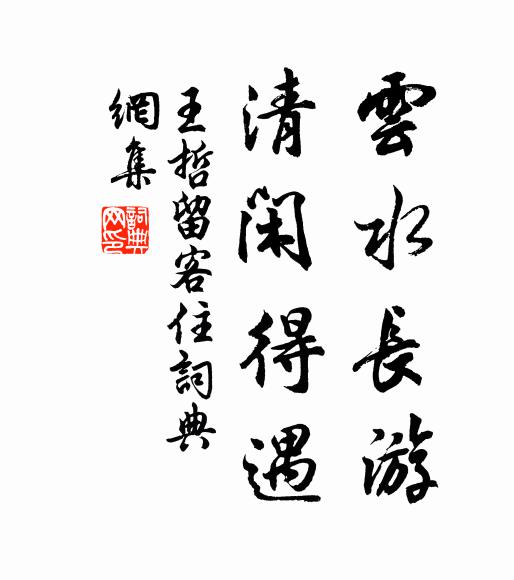 雲水長游
清閑得遇
王哲留客住詞典
網集
詞典
网印